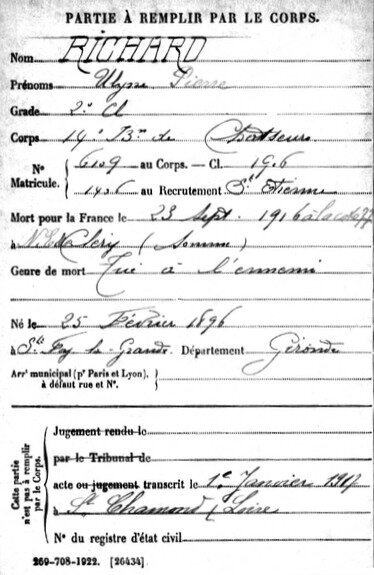 PARTIE À REMPLIR PAR LE CORPS.
Nom RICHARD
Prénoms Ulysse Pierre
Grade 2e Cl
Corps 14e Bon de Chasseurs
No Matricule. 6109 au Corps. — Cl. 1916
1436 au Recrutement St Etienne
Mort pour la France le 23 Sept. 1916 à la cote 77
à N.E. de Cléry (Somme)
Genre de mort Tué à l'ennemi
Né le 25 Février 1896
à Ste Foy la Grande Département Gironde
Arrt municipal (pr Paris et Lyon), à défaut rue et No.
Cette partie n'est pas à remplir par le Corps.
Jugement rendu le
par le Tribunal de
acte ou jugement transcrit le 1er Janvier 1917
à St Chamond (Loire)
No du registre d'état civil
269-708-1922. [26434]